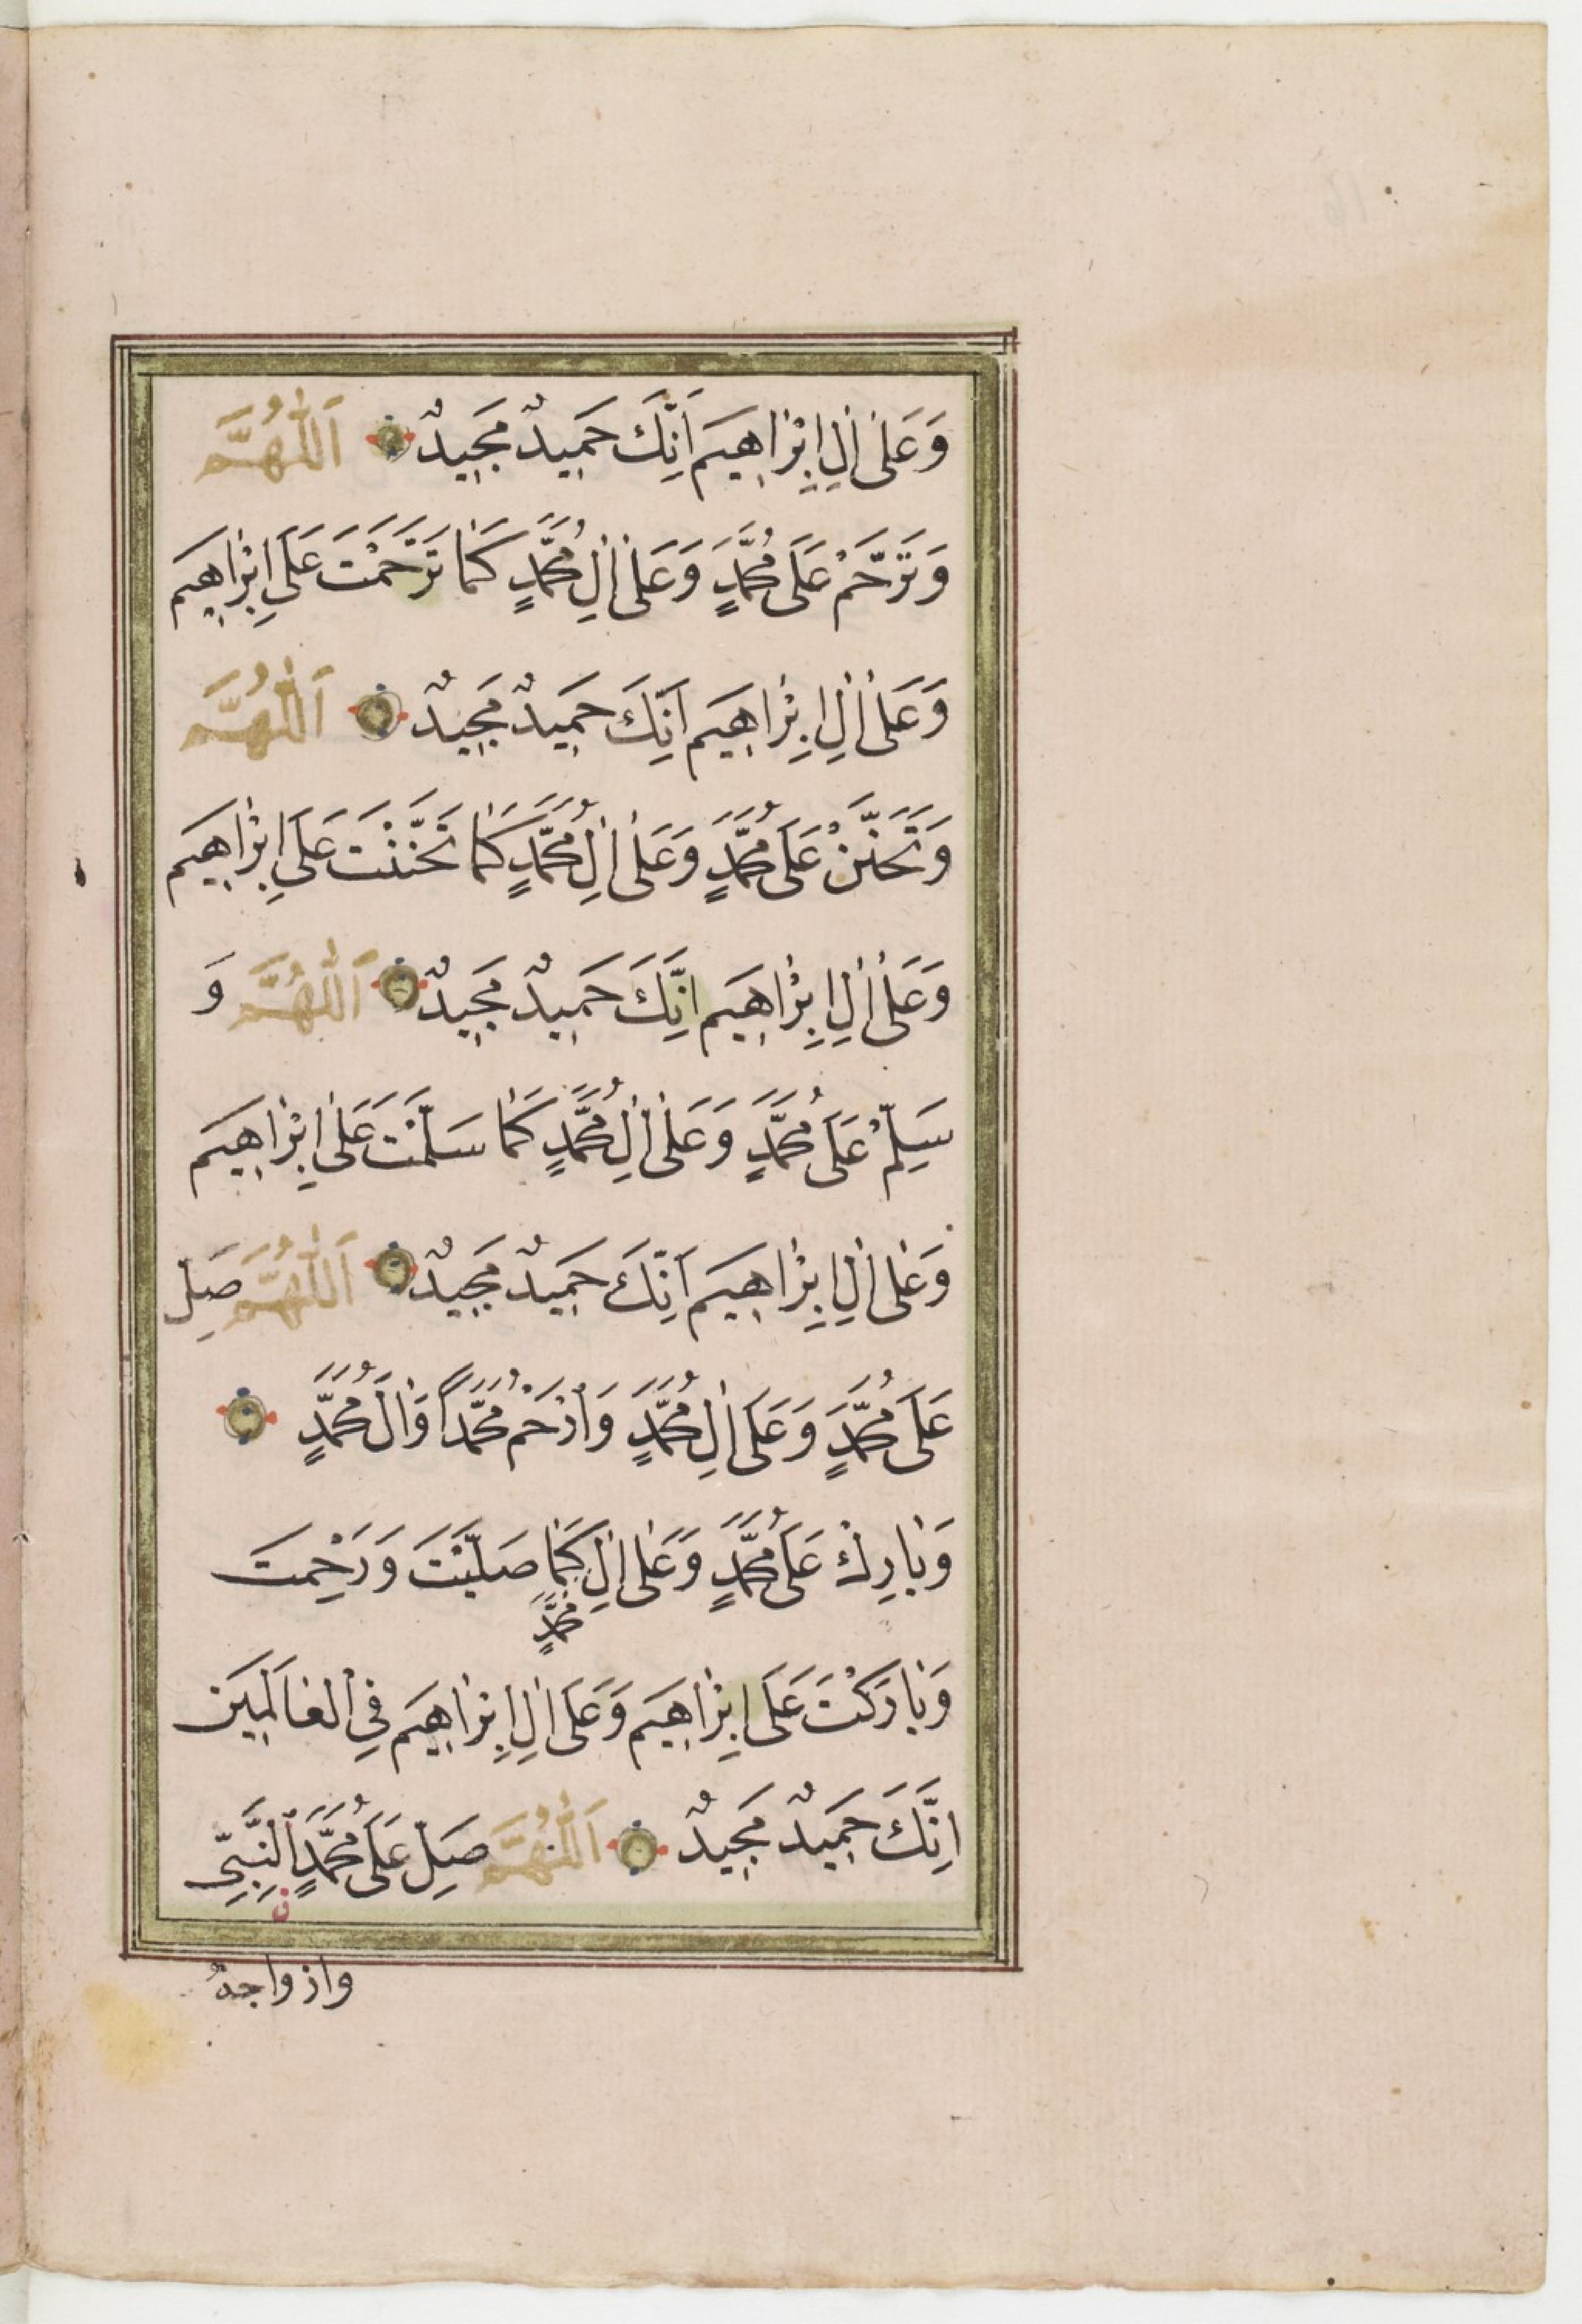 وَعَلٰى اٰلِ اِبْرٰاهِيمَ اِنَّكَ حَمِيدٌ مَجِيدٌ اَللّٰهُمَّ
وَتَرَحَّمْ عَلَى مُحَمَّدٍ وَعَلٰى اٰلِ مُحَمَّدٍ كَمٰا تَرَحَّمْتَ عَلَى اِبْرٰاهِيمَ
وَعَلٰى اٰلِ اِبْرٰاهِيمَ اِنَّكَ حَمِيدٌ مَجِيدٌ اَللّٰهُمَّ
وَتَحَنَّنْ عَلَى مُحَمَّدٍ وَعَلٰى اٰلِ مُحَمَّدٍ كَمٰا تَحَنَّنْتَ عَلَى اِبْرٰاهِيمَ
وَعَلٰى اٰلِ اِبْرٰاهِيمَ اِنَّكَ حَمِيدٌ مَجِيدٌ اَللّٰهُمَّ وَ
سَلِّمْ عَلَى مُحَمَّدٍ وَعَلٰى اٰلِ مُحَمَّدٍ كَمٰا سَلَّمْتَ عَلٰى اِبْرٰاهِيمَ
وَعَلٰى اٰلِ اِبْرٰاهِيمَ اِنَّكَ حَمِيدٌ مَجِيدٌ اَللّٰهُمَّ صَلِّ
عَلَى مُحَمَّدٍ وَعَلَى اٰلِ مُحَمَّدٍ وَارْحَمْ مُحَمَّدًا وَاٰلَ مُحَمَّدٍ
وَبٰارِكْ عَلَى مُحَمَّدٍ وَعَلٰى اٰلِ كَمٰا صَلَّيْتَ وَرَحِمْتَ
مُحَمَّدٍ
وَبٰارَكْتَ عَلَى اِبْرٰاهِيمَ وَعَلَى اٰلِ اِبْرٰاهِيمَ فِي الْعٰالَمِينَ
اِنَّكَ حَمِيدٌ مَجِيدٌ اَللّٰهُمَّ صَلِّ عَلَى مُحَمَّدٍ النَّبِيِّ
ن
وازواجهُ